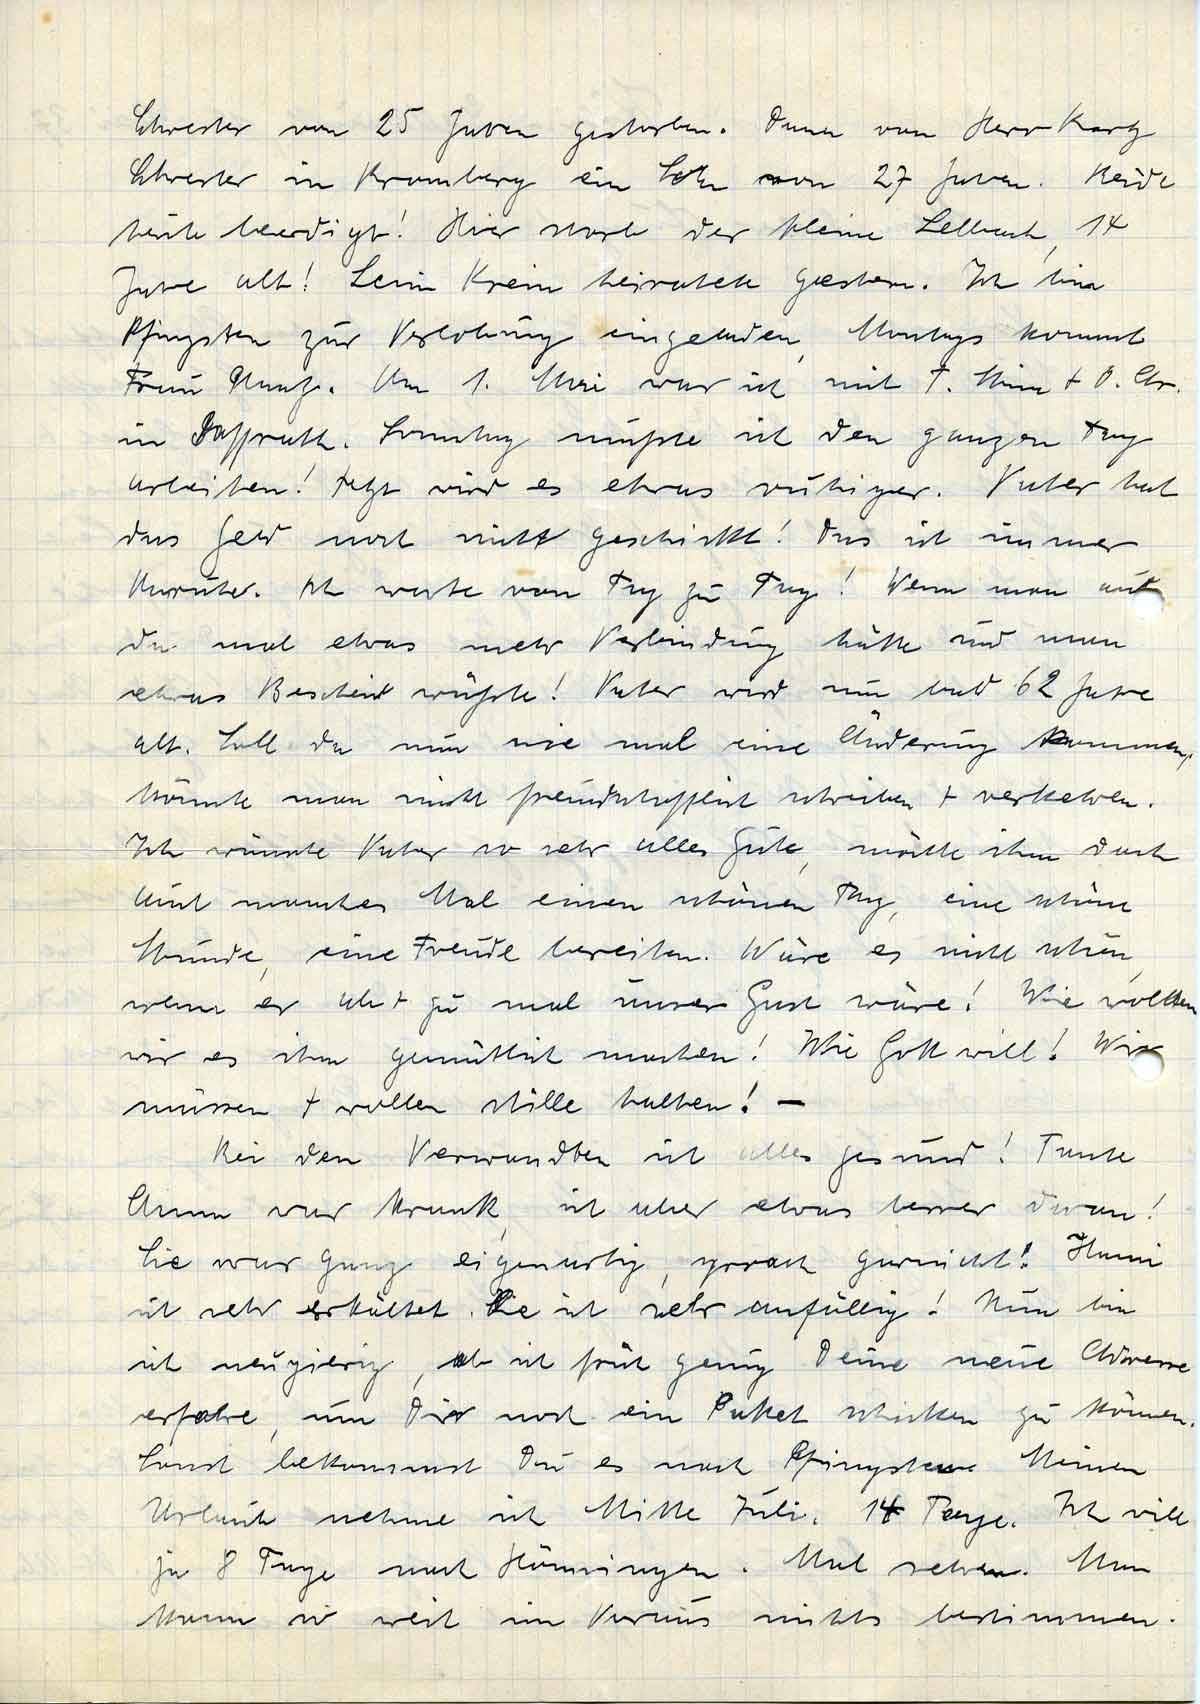 Schwester von 25 Jahren gestorben. Dann von Herr
Schwester in Kromberg ein Sohn von 27 Jahren. Beide
heute beerdigt! Hier starb der kleine Sellbach, 14
Jahre alt! Krein heiratete gestern. Ich bin
Pfingsten zur Verlobung eingeladen, Montags kommt
Frau. Am 1. Mai war ich mit T. Mina + O. Chr.
in Dassrath. Sonntag mußte ich den ganzen Tag
arbeiten! Jetzt wird es etwas ruhiger. Vater hat
das Geld noch nicht geschickt! Das ist immer
Unruhe. Ich warte von Tag zu Tag! Wenn man auch
da mal etwas mehr Verbindung hätte und man
etwas Bescheid wüßte! Vater wird nun bald 62 Jahre
alt. Soll da nun nie mal eine Änderung kommen,
könnte man nicht freundschaftlich schreiben + verkehren.
Ich wünsche Vater so sehr alles Gute, möchte ihm doch
auch manches Mal einen schönen Tag, eine schöne
Stunde, eine Freude bereiten. Wäre es nicht schön,
wenn er ab + zu mal unser Gast wäre! Wie wollten
wir es ihm gemütlich machen! Wie Gott will! Wir
müssen + wollen stille halten! —
Bei den Verwandten ist alles gesund! Tante
Anna war krank, ist aber etwas besser daran!
Sie war ganz eigenartig, sprach garnicht! Hanni
ist sehr erkältet. Sie ist sehr anfällig! Nun bin
ich neugierig, ob ich früh genug Deine neue Adresse
erfahre, um Dir noch ein Paket schicken zu können.
Sonst bekommst Du es nach Pfingsten. Meinen
Urlaub nehme ich Mitte Juli. 14 Tage. Ich will
ja 8 Tage nach Hönningen. Mal sehen. Man
kann so weit im Voraus nichts bestimmen.